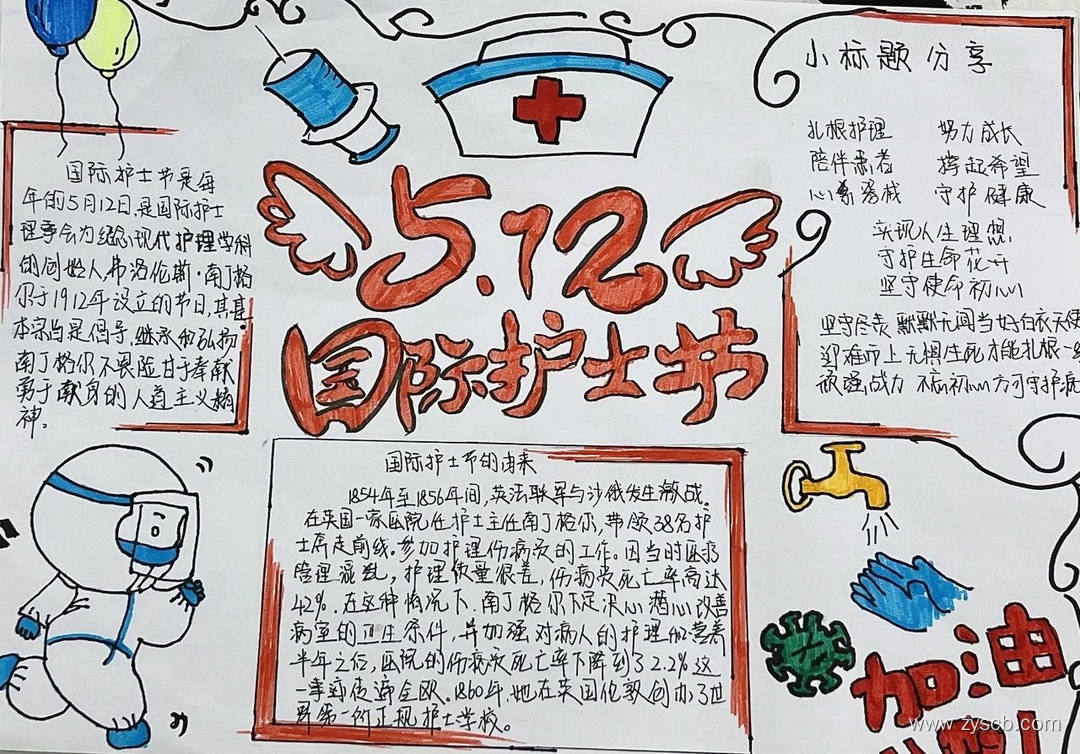 5.12
国际护士节
国际护士节是每
年的5月12日,是国际护士
理事会为纪念现代护理学科
的创始人弗洛伦斯·南丁格
尔于1912年设立的节日,其基
本宗旨是倡导,继承和弘扬
南丁格尔不畏险甘于奉献
勇于献身的人道主义精
神。
小标题分享
扎根护理 努力成长
陪伴患者 撑起希望
心系 守护健康
实现人生理想
守护生命花开
坚守使命初心
坚守尽责 默默无闻当好白衣天使
迎难而上无惧生死才能扎根一
顽强战力 不忘初心方可守护病
国际护士节的由来
1854年至1856年间,英法联军与沙俄发生激战。
在英国一家医院任护士主任南丁格尔,带领38名护
士奔走前线。参加护理伤病员的工作。因当时医疗
管理混乱,护理质量很差,伤病员死亡率高达
42%.在这种情况下.南丁格尔下定决心潜心改善
病室的卫生条件,并加强对病人的护理和营养
半年之后,医院的伤病员死亡率下降到了2.2%这
一事迹传遍全欧.1860年,她在英国伦敦创办了世
界第一所正规护士学校。
加油
www.zyscb.com